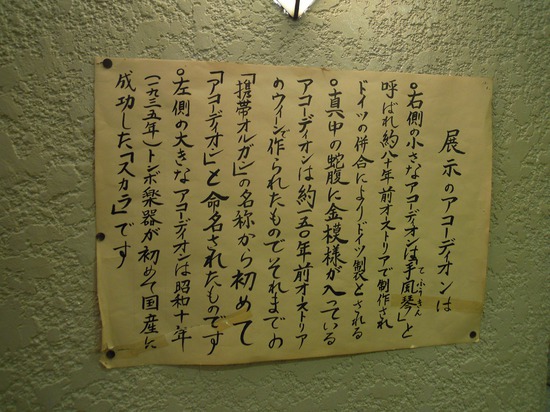 展示のアコーディオンは
○右側の小さなアコーディオンは「手風琴」と
てふうきん
呼ばれ約八十年前オーストリアで制作され
ドイツの併合によりドイツ製とされる
○真中の蛇腹に金模様が入っている
アコーディオンは約一五〇年前オーストリア
のウィーンで作られたものでそれまでの
「携帯オルガン」の名称から初めて
「アコーディオン」と命名されたものです
○左側の大きなアコーディオンは昭和十年
(一九三五年)トンボ楽器が初めて国産に
成功した「スカラ」です